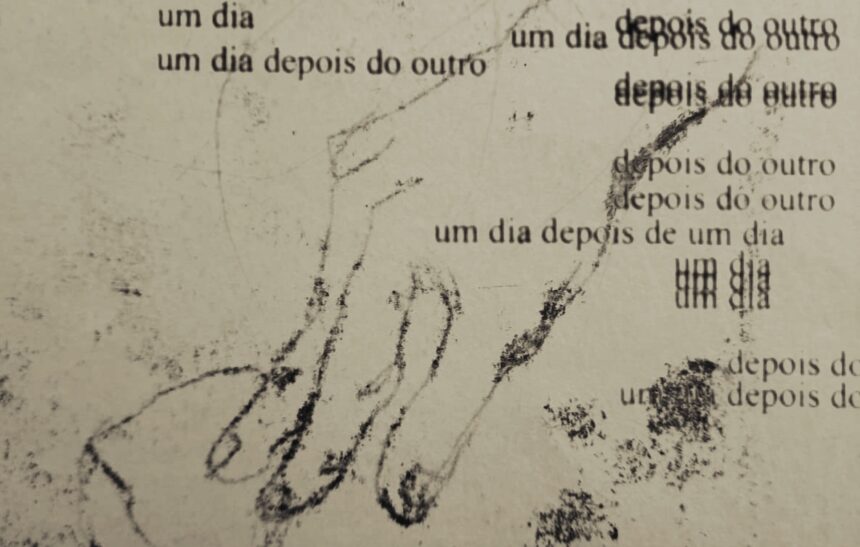 um dia
depois do outro
um dia depois do outro
um dia depois do outro
depois do outro
depois do outro
depois do outro
depois do outro
um dia depois de um dia
um dia
um dia
um dia
depois do
um dia depois do